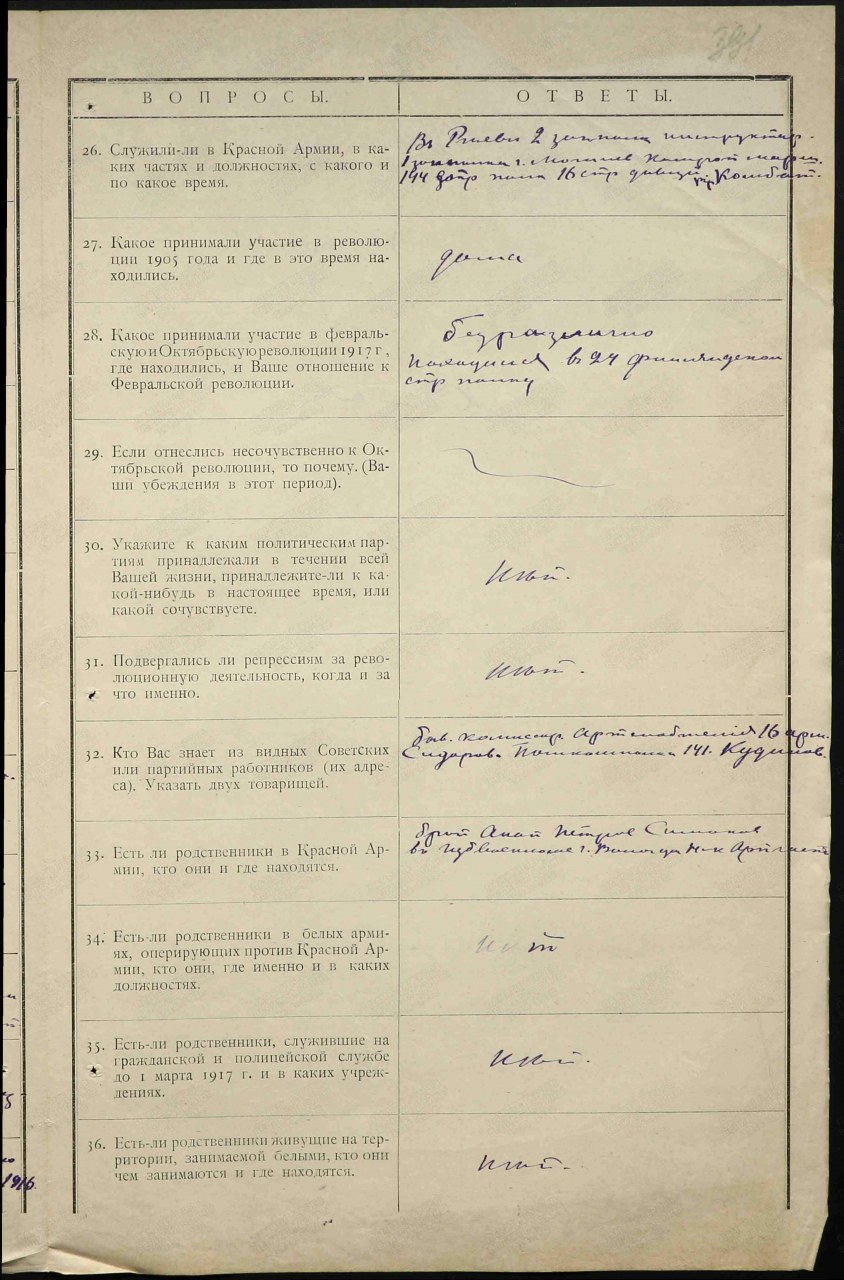 391
ВОПРОСЫ.
ОТВЕТЫ.
26. Служили-ли в Красной Армии, в ка-
ких частях и должностях, с какого и
по какое время.
Въ 2 инструктор.
г. Могилев
144 стр полк 16 стр дивизии Комбат.
27. Какое принимали участие в револю-
ции 1905 года и где в это время на-
ходились.
дома
28. Какое принимали участие в февраль-
скую и Октябрьскую революции 1917 г,
где находились, и Ваше отношение к
Февральской революции.
Безразлично
находился в 24 финляндском
стр полку
29. Если отнеслись несочувственно к Ок-
тябрьской революции, то почему. (Ва-
ши убеждения в этот период).
30. Укажите к каким политическим пар-
тиям принадлежали в течении всей
Вашей жизни, принадлежите-ли к ка-
кой-нибудь в настоящее время, или
какой сочувствуете.
нет.
31. Подвергались ли репрессиям за рево-
люционную деятельность, когда и за
что именно.
нет.
32. Кто Вас знает из видных Советских
или партийных работников (их адре-
са). Указать двух товарищей.
быв. комиссар Артснабжения 16 арм.
Сидоров. 141. Кудинов.
33. Есть ли родственники в Красной Ар-
мии, кто они и где находятся.
брат Петров
г. Вологда
34. Есть-ли родственники в белых арми-
ях, оперирующих против Красной Ар-
мии, кто они, где именно и в каких
должностях.
нет
35. Есть-ли родственники, служившие на
гражданской и полицейской службе
до 1 марта 1917 г. и в каких учреж-
дениях.
нет.
36. Есть-ли родственники живущие на тер-
ритории, занимаемой белыми, кто они
чем занимаются и где находятся.
нет.
1916